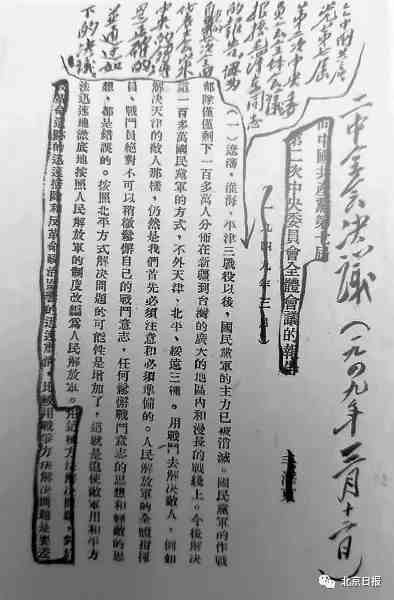 二中全会决議（一九四九年三月十三日）
第二次中央委員會全體會議的報告
一九四九年三月
第二次中央委
員會全體會議
根據毛澤東同志
並通過如
下的決議
（一）遼瀋，淮海，平津三戰役以後，國民黨軍的主力已被消滅。國民黨軍的作戰
部隊僅僅剩下一百多萬人分佈在新疆到台灣的廣大的地區內和漫長的戰綫上。今後解決
這一百多萬國民黨軍的方式，不外天津、北平、綏遠三種。用戰鬥去解決敵人，例如
解決天津的敵人那樣，仍然是我們首先必須注意和必須準備的。人民解放軍的全體指揮
員、戰鬥員絕對不可以稍微鬆懈自己的戰鬥意志，任何鬆懈戰鬥意志的思想和輕敵的思
想，都是錯誤的。按照北平方式解決問題的可能性是增加了，這就是迫使敵軍用和平方
法迅速地徹底地按照人民解放軍的制度改編爲人民解放軍。用這種方法解決問題，對於
反革命遺跡的迅速掃除和反革命政治影響的迅速肅清，比較用戰爭方法解決問題是要差
北京日报